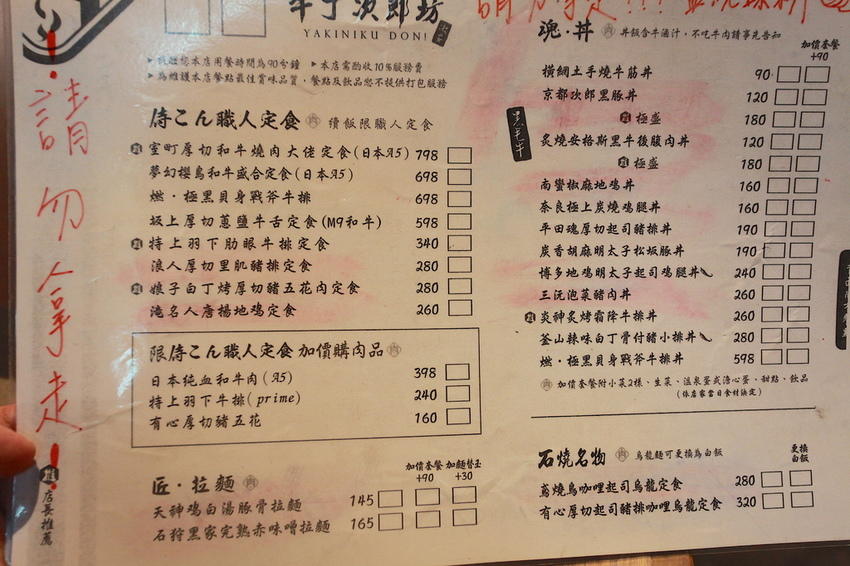 牛丁次郎坊
YAKINIKU DON!
用餐時間為90分鐘 ▸本店需酌收10%服務費
▸為維護本店餐點最佳賞味品質，餐點及飲品您不提供打包服務
請勿拿走!
侍こん職人定食 續飯限職人定食
室町厚切和牛燒肉大佬定食(日本A5) 798
夢幻櫻島和牛盛合定食(日本A5) 698
燃・極黑貝身戰斧牛排 698
坂上厚切蔥鹽牛舌定食(M9和牛) 598
特上羽下肋眼牛排定食 340
浪人厚切里肌豬排定食 280
娘子白丁烤厚切豬五花肉定食 280
滝名人唐揚地鶏定食 260
限侍こん職人定食 加價購肉品
日本純血和牛肉(A5) 398
特上羽下牛排(prime) 240
有心厚切豬五花 160
匠・拉麵
加價套餐 +90 加麵替玉 +30
天神鶏白湯豚骨拉麵 145
石狩黑家完熟赤味噌拉麵 165
店長推薦
魂・丼 丼飯含牛滷汁，不吃牛肉請事先告知
加價套餐 +90
橫綱土手燒牛筋丼 90
京都次郎黑豚丼 120
極盛 180
炙燒安格斯黑牛後腹肉丼 120
極盛 180
南蠻椒麻地鶏丼 160
奈良極上炭燒鶏腿丼 160
平田魂厚切起司豬排丼 190
炭香胡麻明太子松坂豚丼 190
博多地鶏明太子起司鶏腿丼 240
三沅泡菜豬肉丼 260
炎神炙烤霜降牛排丼 260
釜山辣味白丁骨付豬小排丼 280
燃・極黑貝身戰斧牛排丼 598
加價套餐附小菜2樣、生菜、溫泉蛋或溏心蛋、甜點、飲品
(依店家當日食材決定)
石燒名物 烏龍麵可更換為白飯
更換白飯
鳶燒鳥咖哩起司烏龍定食 280
有心厚切起司豬排咖哩烏龍定食 320